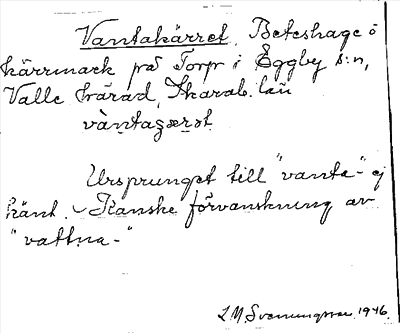 Vantakärret. Beteshage o
kärrmark på Torp i Eggby s:n,
Valle härad, Skarab. län
vàntaʒærət
Ursprunget till "vanta-" ej
känt. Kanske förvanskning av
"vattna-"
L.M. Svenungsson 1946.